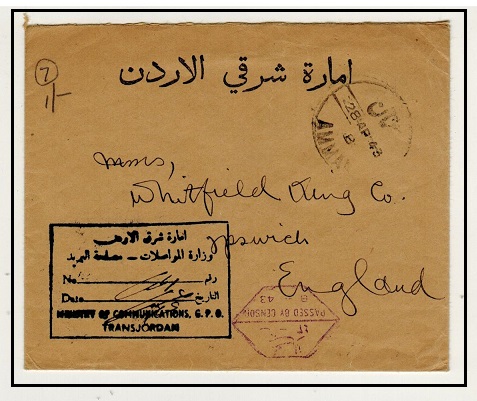 7
1/-
امارة شرقي الاردن
28 AP 43
AMMA
Messrs,
Whitfield King Co.
Ipswich
England
امارة شرق الاردن
وزارة المواصلات - مصلحة البريد
No. رقم
Date التاريخ
MINISTRY OF COMMUNICATIONS, G. P. O.
TRANSJORDAN
PASSED BY CENSOR
8
43